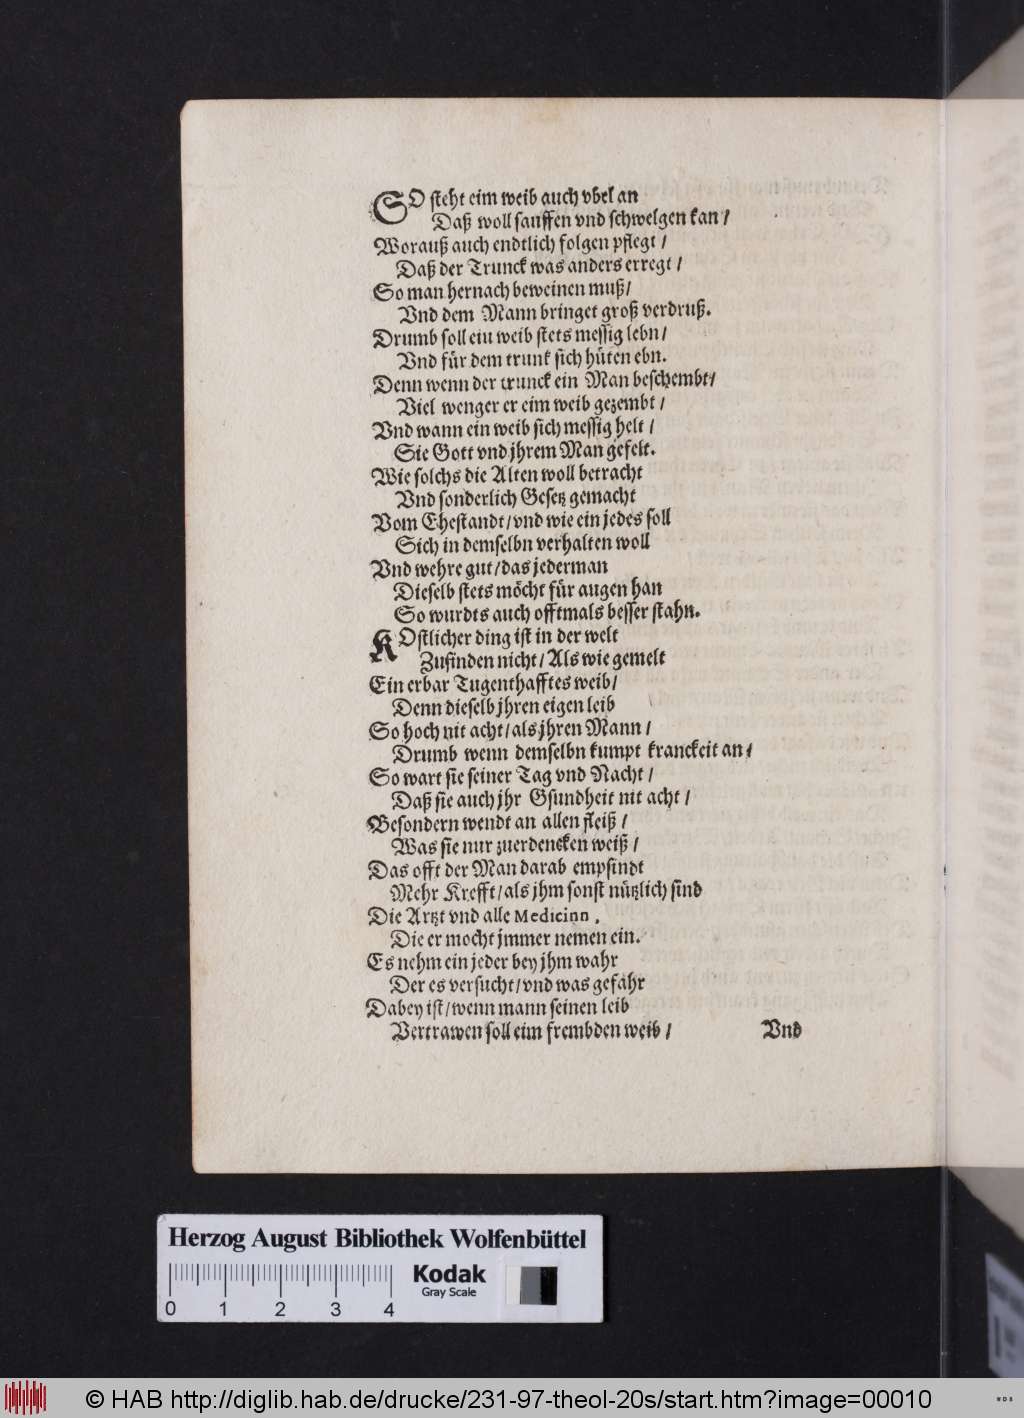 SO steht eim weib auch vbel an
Daß woll sauffen vnd schwelgen kan /
Worauß auch endtlich folgen pflegt /
Daß der Trunck was anders erregt /
So man hernach beweinen muß /
Vnd dem Mann bringet groß verdruß.
Drumb soll ein weib stets messig lebn /
Vnd für dem trunk sich hüten ebn.
Denn wenn der trunck ein Man beschembt /
Viel wenger er eim weib gezembt /
Vnd wann ein weib sich messig helt /
Sie Gott vnd jhrem Man gefelt.
Wie solchs die Alten woll betracht
Vnd sonderlich Gesetz gemacht
Vom Ehestandt / vnd wie ein jedes soll
Sich in demselbn verhalten woll
Vnd wehre gut / das jederman
Dieselb stets möcht für augen han
So wurdts auch offtmals besser stahn.
KOstlicher ding ist in der welt
Zufinden nicht / Als wie gemelt
Ein erbar Tugenthafftes weib /
Denn dieselb jhren eigen leib
So hoch nit acht / als jhren Mann /
Drumb wenn demselbn kumpt kranckeit an /
So wart sie seiner Tag vnd Nacht /
Daß sie auch jhr Gsundheit nit acht /
Besondern wendt an allen fleiß /
Was sie nur zuerdencken weiß /
Das offt der Man darab empfindt
Mehr Krefft / als jhm sonst nützlich sind
Die Artzt vnd alle Medicinn,
Die er mocht jmmer nemen ein.
Es nehm ein jeder bey jhm wahr
Der es versucht / vnd was gefahr
Dabey ist / wenn mann seinen leib
Vertrawen soll eim frembden weib /
Vnd
Herzog August Bibliothek Wolfenbüttel
Kodak
Gray Scale
0 1 2 3 4
© HAB http://diglib.hab.de/drucke/231-97-theol-20s/start.htm?image=00010